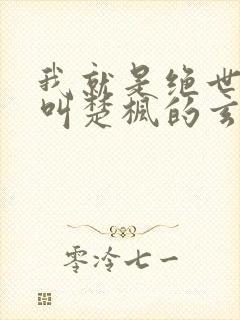 我就是绝世
叫楚枫的玄
零泠七一